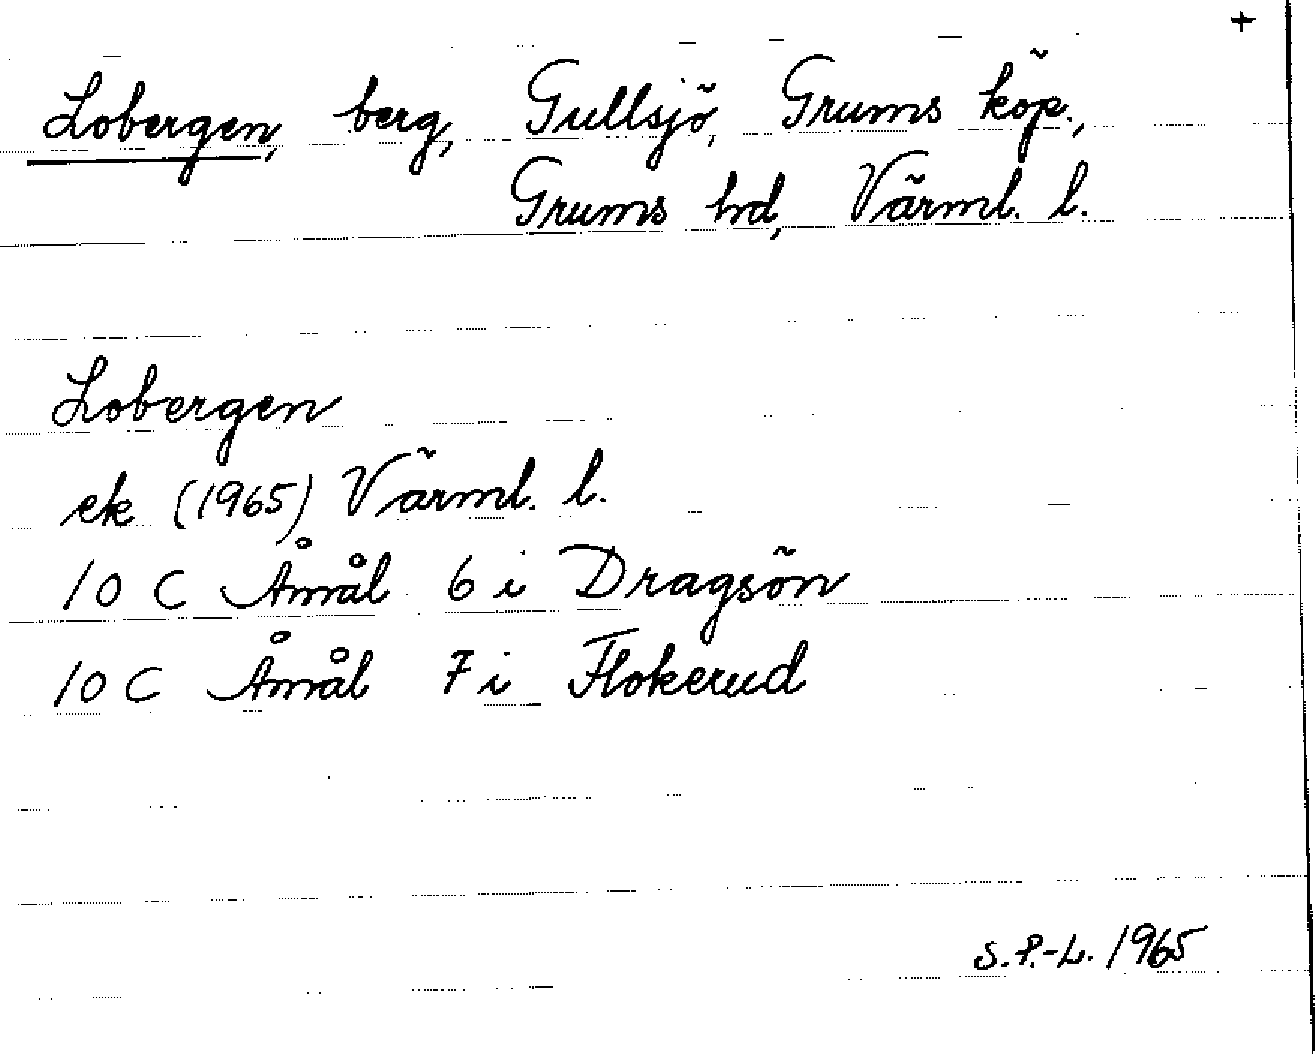 +
Lobergen, berg, Gullsjö, Grums köp.,
Grums hd, Värml. l.
Lobergen
ek (1965) Värml. l.
10 C Åmål 6 i Dragsön
10 C Åmål 7 i Flokerud
S.P.-L. 1965